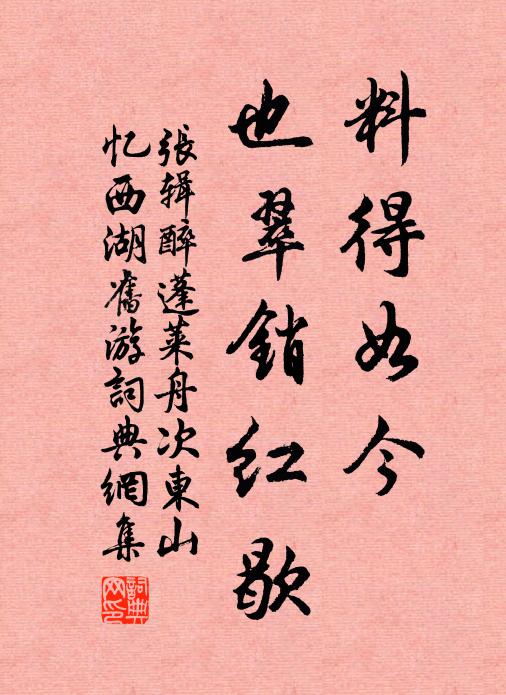 料得如今
也翠銷红歇
張辑醉蓬莱舟次東山
忆西湖舊游詞典網集
詞典
网印